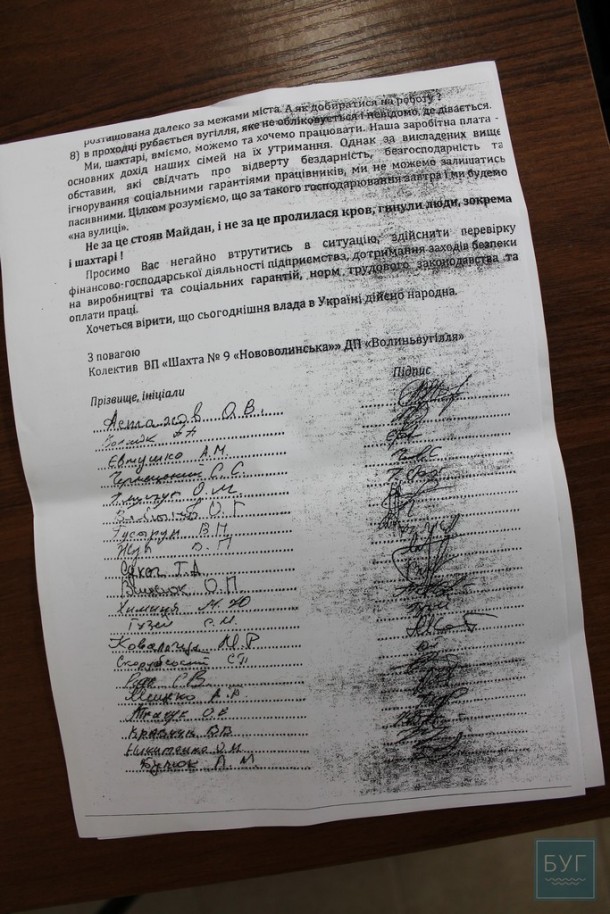 розташована далеко за межами міста. А як добиратися на роботу ?
8) в проходці рубається вугілля, яке не обліковується і невідомо, де дівається.
Ми, шахтарі, вміємо, можемо та хочемо працювати. Наша заробітна плата -
основних дохід наших сімей на їх утримання. Однак за викладених вище
обставин, які свідчать про відверту бездарність, безгосподарність та
ігнорування соціальними гарантіями працівників, ми не можемо залишатись
пасивними. Цілком розуміємо, що за такого господарювання завтра і ми будемо
«на вулиці».
Не за це стояв Майдан, і не за це пролилася кров, гинули люди, зокрема
і шахтарі !
Просимо Вас негайно втрутитись в ситуацію, здійснити перевірку
фінансово-господарської діяльності підприємства, дотримання заходів безпеки
на виробництві та соціальних гарантій, норм трудового законодавства та
оплати праці.
Хочеться вірити, що сьогоднішня влада в Україні дійсно народна.
З повагою
Колектив ВП «Шахта № 9 «Нововолинська»» ДП «Волиньвугілля»
Прізвище, ініціали Підпис
Астахов О.В.
Євтушко А.М.
С.С.
О.М.
О.Г
Густрун В.П
Жук В.П
Т.А
О.П
Химиця
Гузей С.М.
Ковальчук М.Р
СП
СВ
Мешко А.Р
Ткачук О.В
Кравчик В.В
Никитенко О.Н
Бунюк Л.М
БУГ